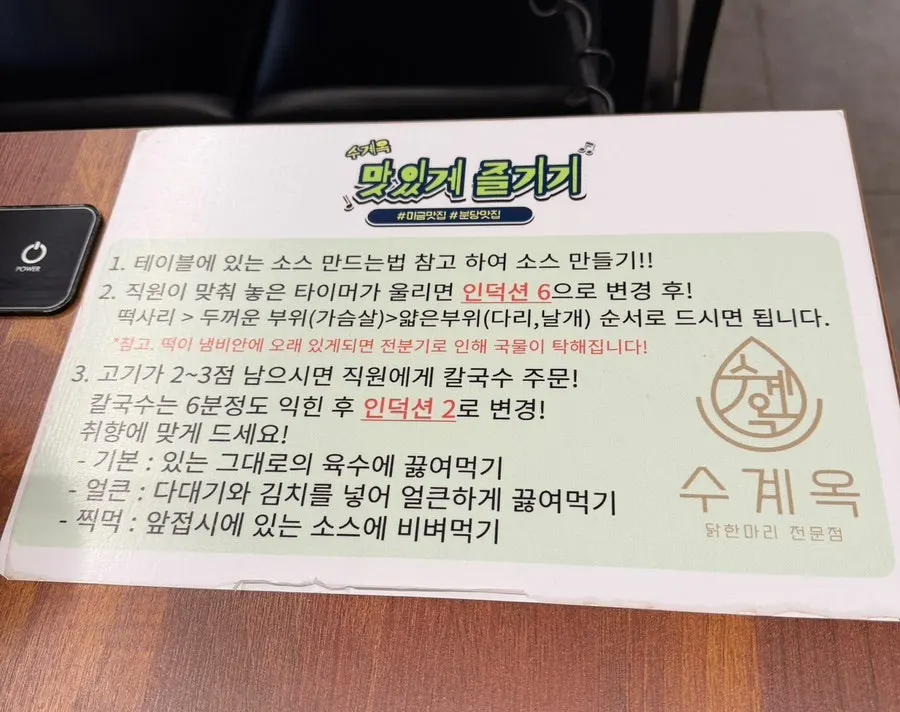 수계옥
맛있게 즐기기
#미금맛집 #분당맛집
POWER
1. 테이블에 있는 소스 만드는법 참고 하여 소스 만들기!!
2. 직원이 맞춰 놓은 타이머가 울리면 인덕션 6으로 변경 후!
떡사리 > 두꺼운 부위(가슴살)>얇은부위(다리,날개) 순서로 드시면 됩니다.
*참고. 떡이 냄비안에 오래 있게되면 전분기로 인해 국물이 탁해집니다!
3. 고기가 2~3점 남으시면 직원에게 칼국수 주문!
칼국수는 6분정도 익힌 후 인덕션 2로 변경!
취향에 맞게 드세요!
- 기본 : 있는 그대로의 육수에 끓여먹기
- 얼큰 : 다대기와 김치를 넣어 얼큰하게 끓여먹기
- 찍먹 : 앞접시에 있는 소스에 비벼먹기
수계
옥
수계옥
닭한마리 전문점